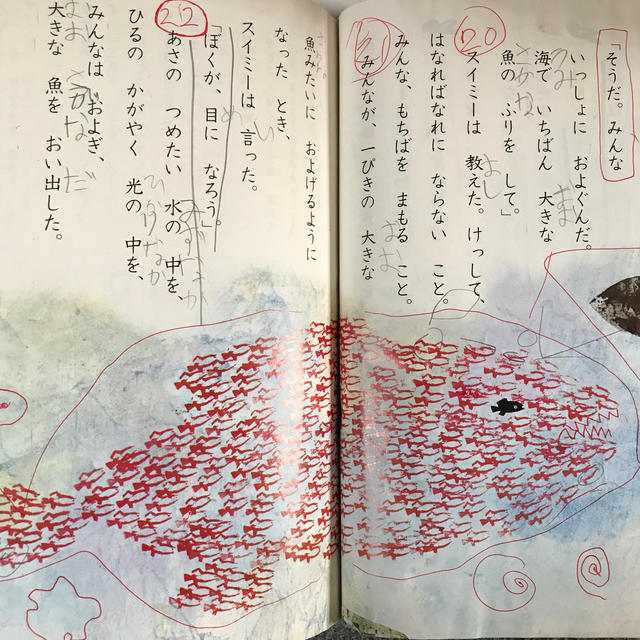 「そうだ。みんな
いっしょに およぐんだ。
海で いちばん 大きな
魚の ふりを して。」
スイミーは 教えた。けっして、
はなればなれに ならない こと。
みんな、もちばを まもる こと。
みんなが、一ぴきの 大きな
魚みたいに およげるように
なった とき、
スイミーは 言った。
「ぼくが、目に なろう。」
あさの つめたい 水の 中を、
ひるの かがやく 光の 中を、
みんなは およぎ、
大きな 魚を おい出した。